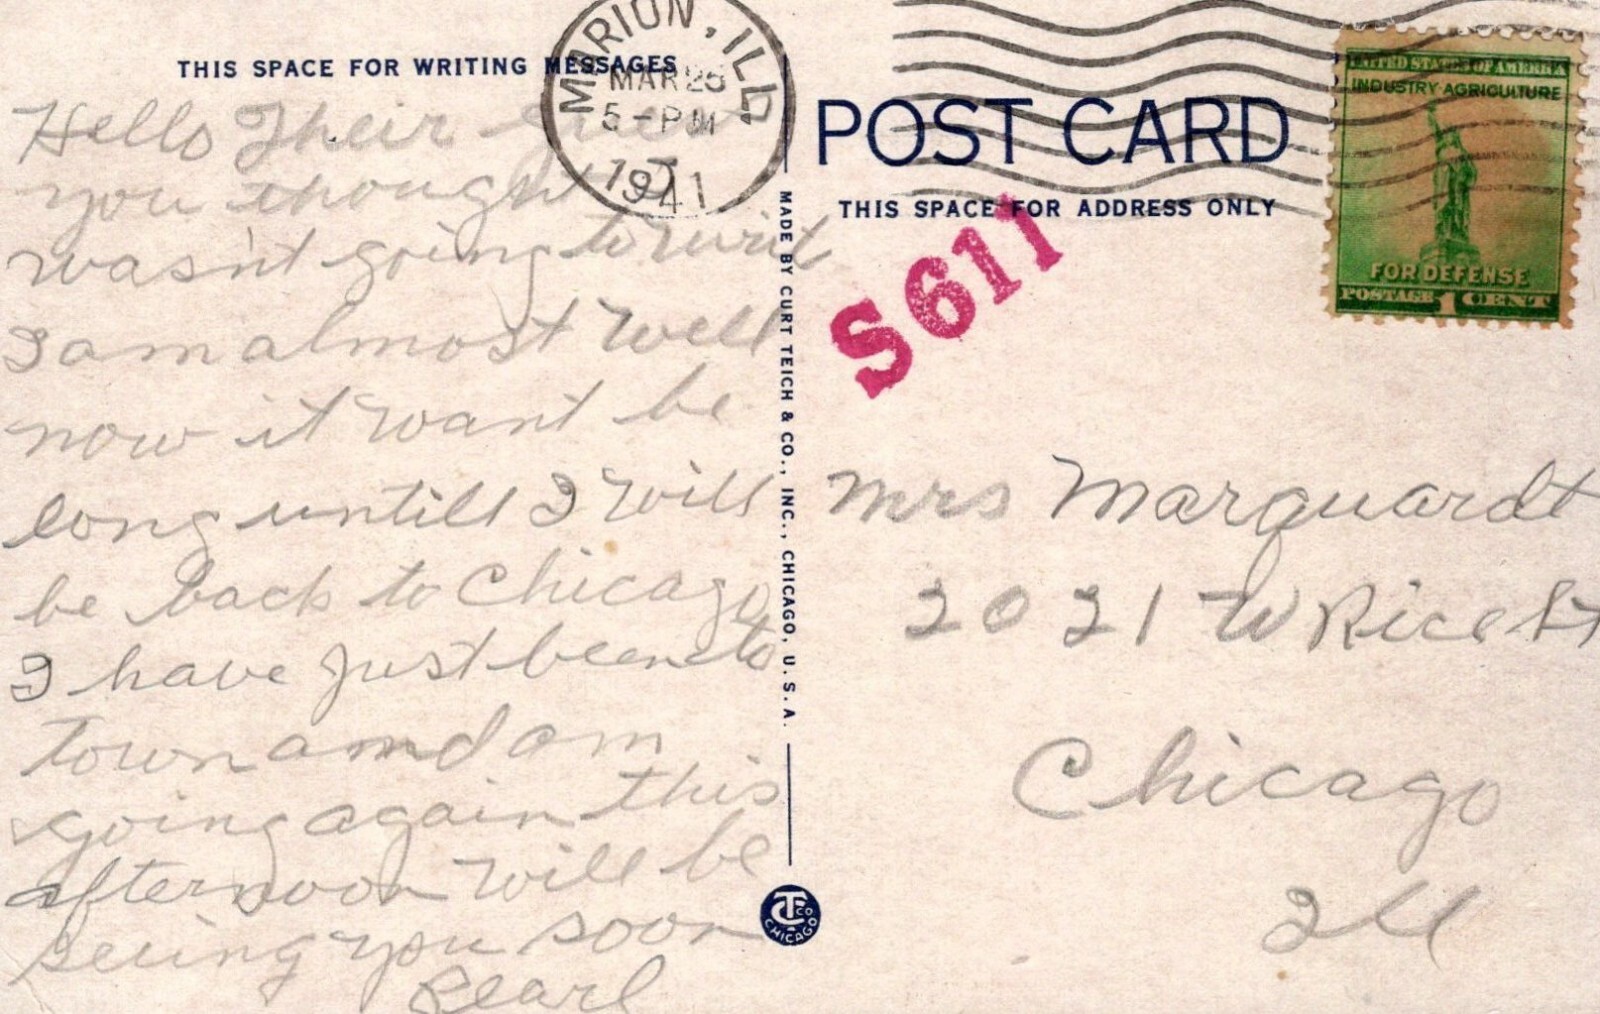 THIS SPACE FOR WRITING MESSAGES
Hello Their guess
you thought I
wasn't going to writ
I am almost well
now it want be
long untill I will
be back to Chicago
I have just been to
town amd am
going again this
afternoon will be
seeing you soon
Pearl
MARION, ILL.
MAR 25
5-PM
1941
MADE BY CURT TEICH & CO., INC., CHICAGO, U.S.A.
CT CO
CHICAGO
POST CARD
THIS SPACE FOR ADDRESS ONLY
S611
UNITED STATES OF AMERICA
INDUSTRY AGRICULTURE
FOR DEFENSE
POSTAGE 1 CENT
Mrs Marquardt
2021 W Rice St
Chicago
Ill